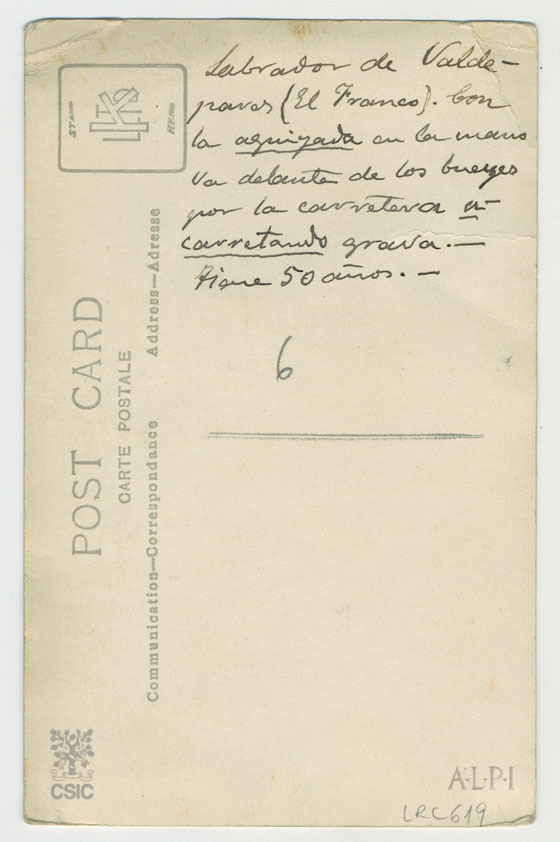 Labrador de Valde-
pares (El Franco). Con
la aguiyada en la mano
va delante de los bueyes
por la carretera a-
carretando grava.—
Tiene 50 años.—
6
STAMP
HERE
POST CARD
CARTE POSTALE
Communication—Correspondance
Address—Adresse
CSIC
A·L·P·I
LRC619